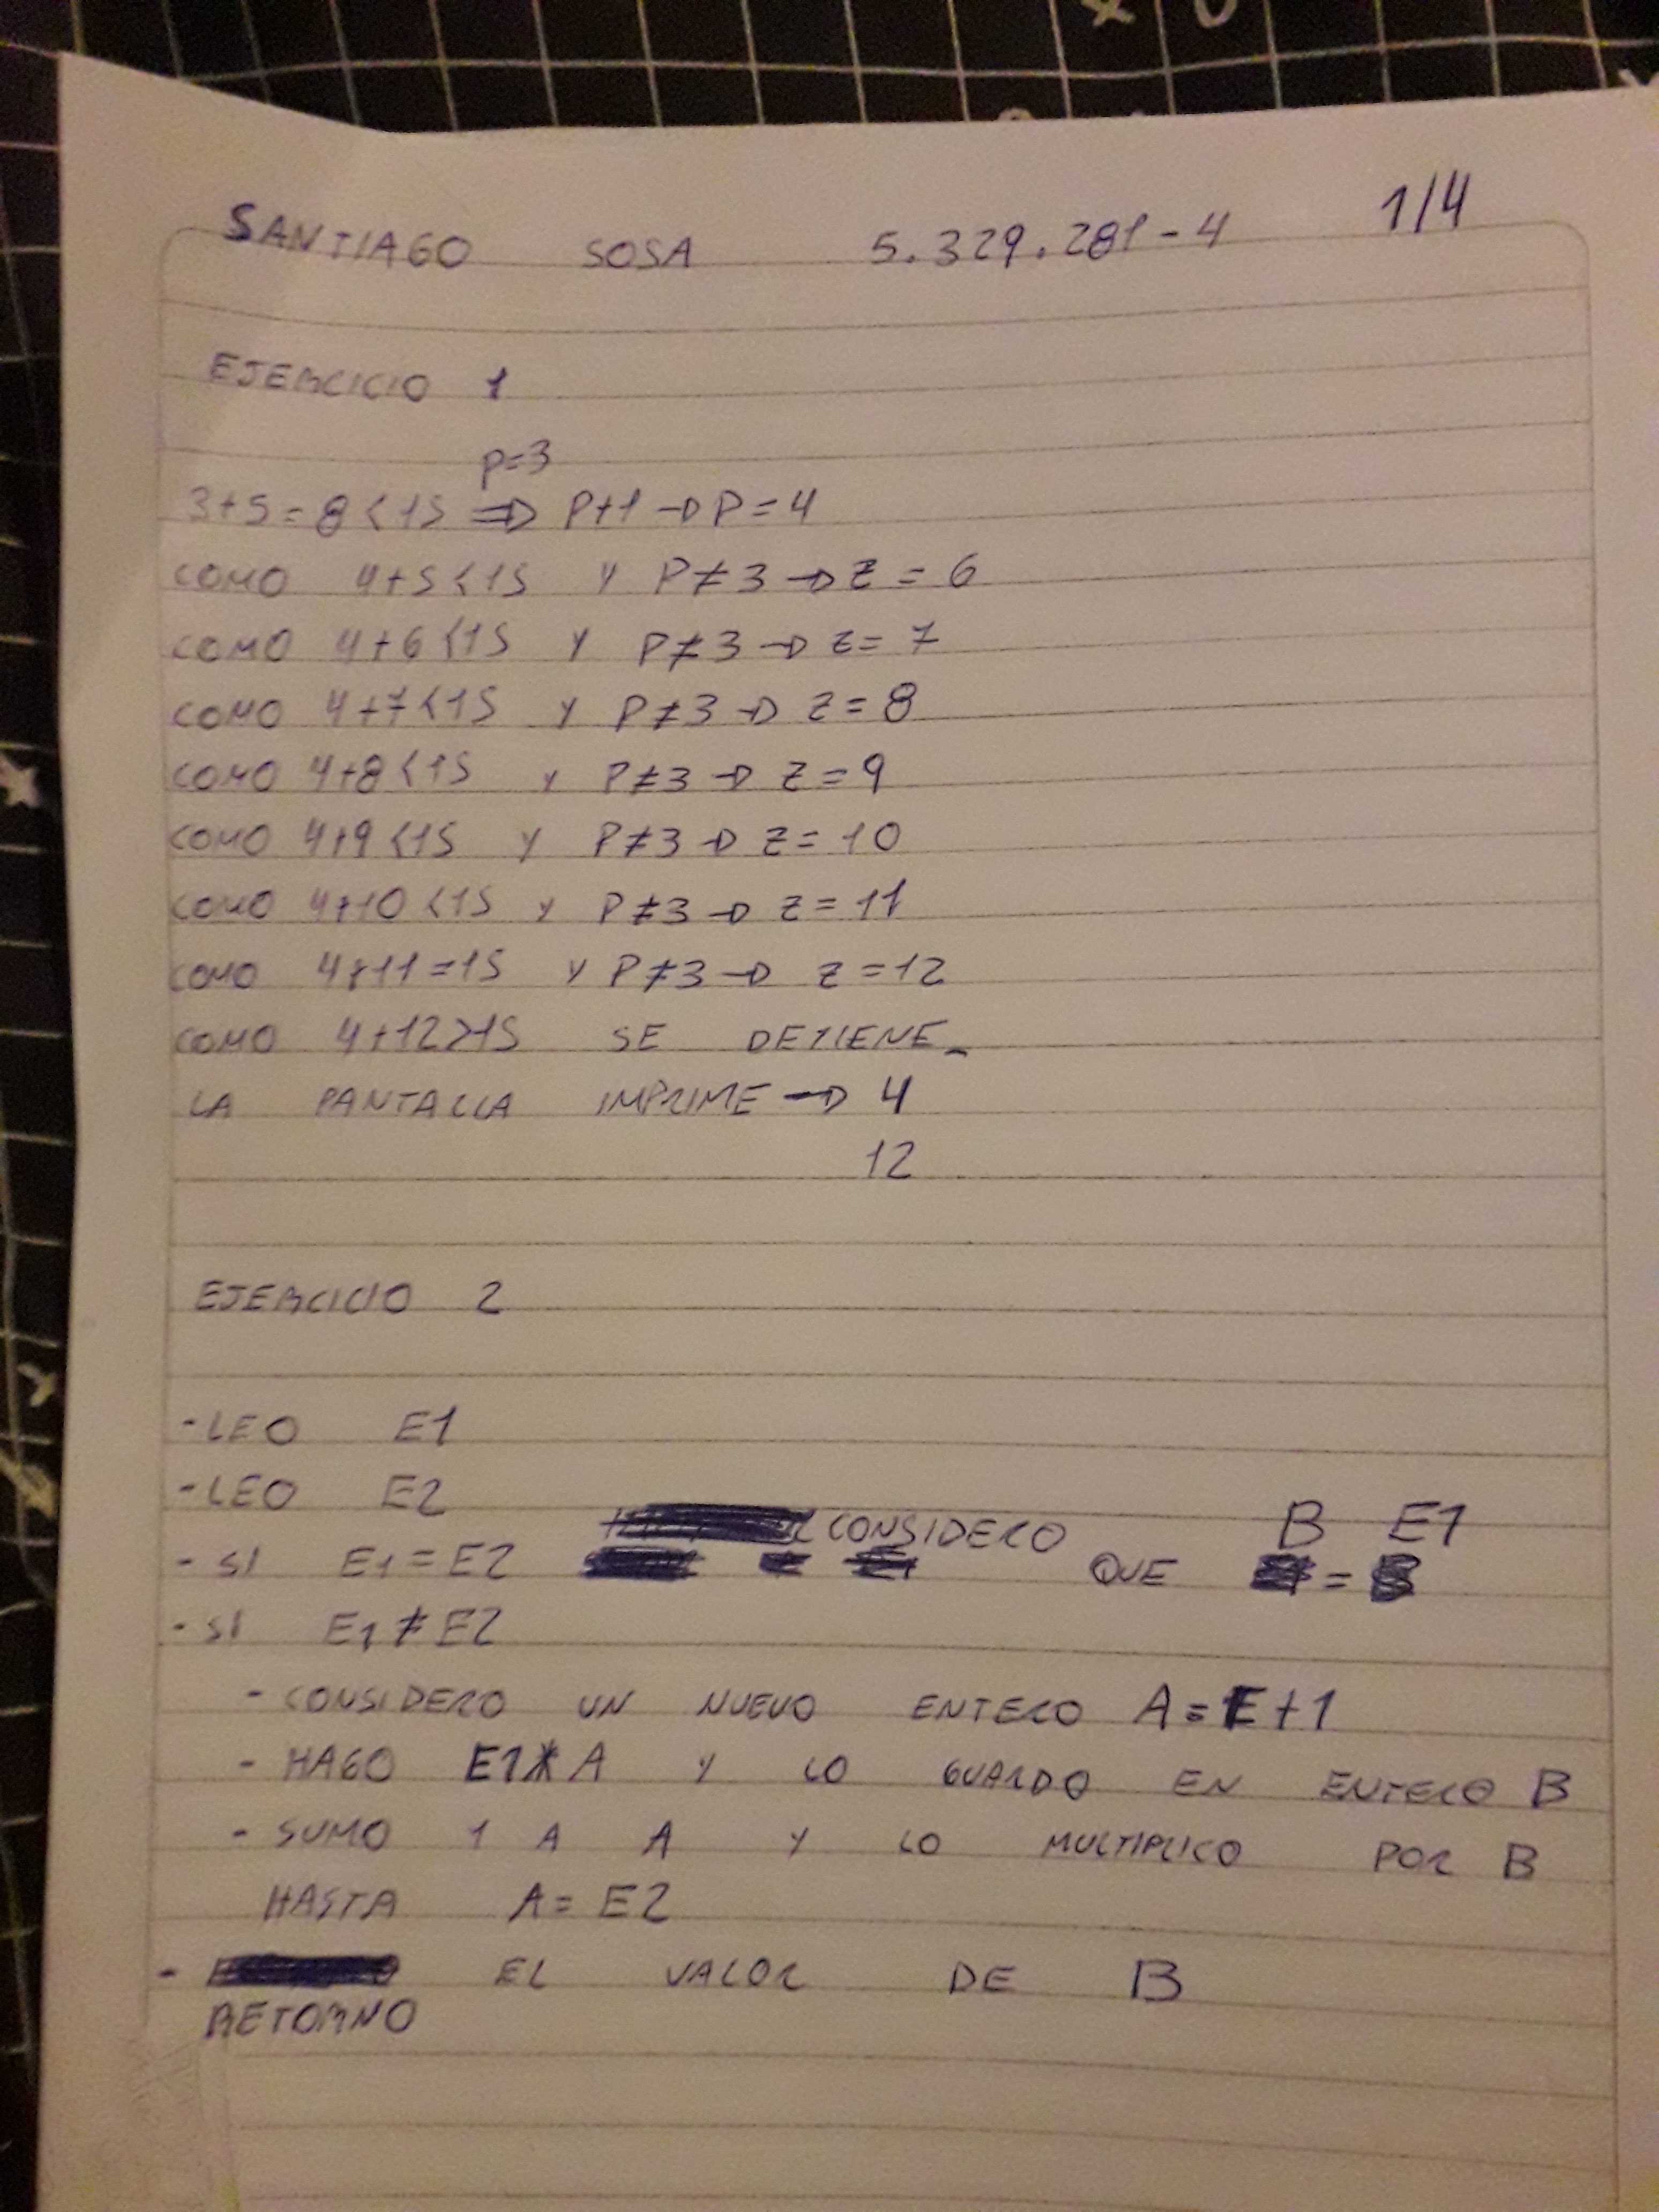 SANTIAGO SOSA 5.329.281-4 1/4
EJERCICIO 1
p=3
3+5=8<15 ⇒ P+1 → P=4
COMO 4+5<15 Y P≠3 → Z=6
COMO 4+6<15 Y P≠3 → Z=7
COMO 4+7<15 Y P≠3 → Z=8
COMO 4+8<15 Y P≠3 → Z=9
COMO 4+9<15 Y P≠3 → Z=10
COMO 4+10<15 Y P≠3 → Z=11
COMO 4+11=15 Y P≠3 → Z=12
COMO 4+12>15 SE DETIENE.
LA PANTALLA IMPRIME → 4
12
EJERCICIO 2
- LEO E1
- LEO E2
- SI E1=E2 CONSIDERO QUE B = E1
- SI E1≠E2
- CONSIDERO UN NUEVO ENTERO A=E+1
- HAGO E1*A Y LO GUARDO EN ENTERO B
- SUMO 1 A A Y LO MULTIPLICO POR B
HASTA A=E2
- RETORNO EL VALOR DE B